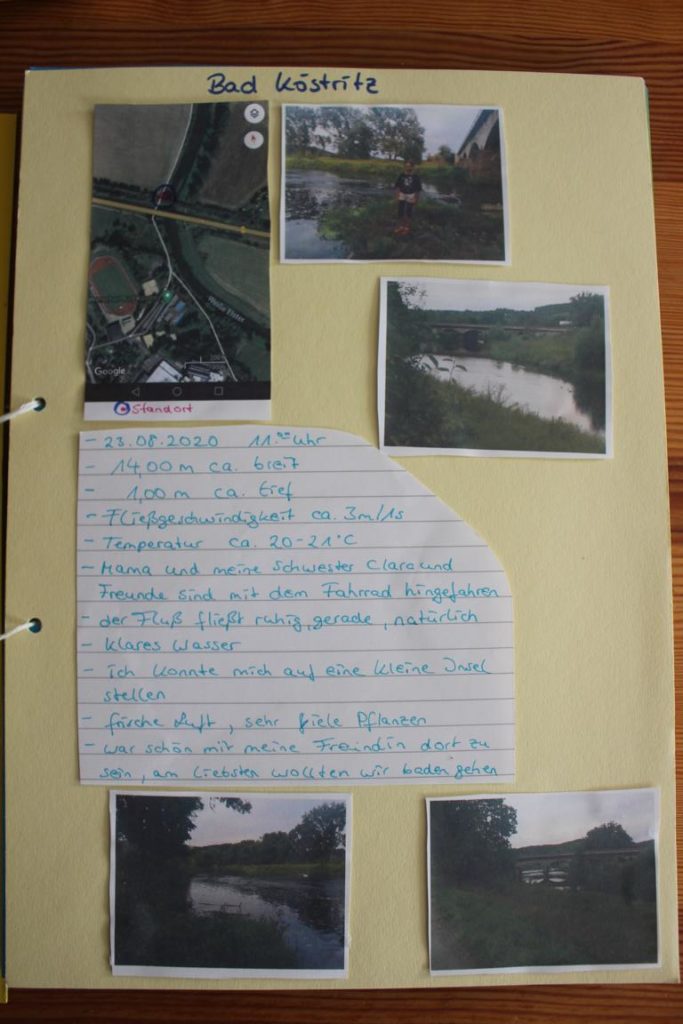 Bad Köstritz
Weiße Elster
Google
Standort
- 23.08.2020 11.00 Uhr
- 14,00 m ca. breit
- 1,00 m ca. tief
- Fließgeschwindigkeit ca. 3m/1s
- Temperatur ca. 20-21°C
- Mama und meine Schwester Clara und
Freunde sind mit dem Fahrrad hingefahren
- der Fluß fließt ruhig, gerade, natürlich
- klares Wasser
- ich konnte mich auf eine kleine Insel
stellen
- frische Luft, sehr fiele Pflanzen
- war schön mit meine Freindin dort zu
sein, am liebsten wollten wir baden gehen